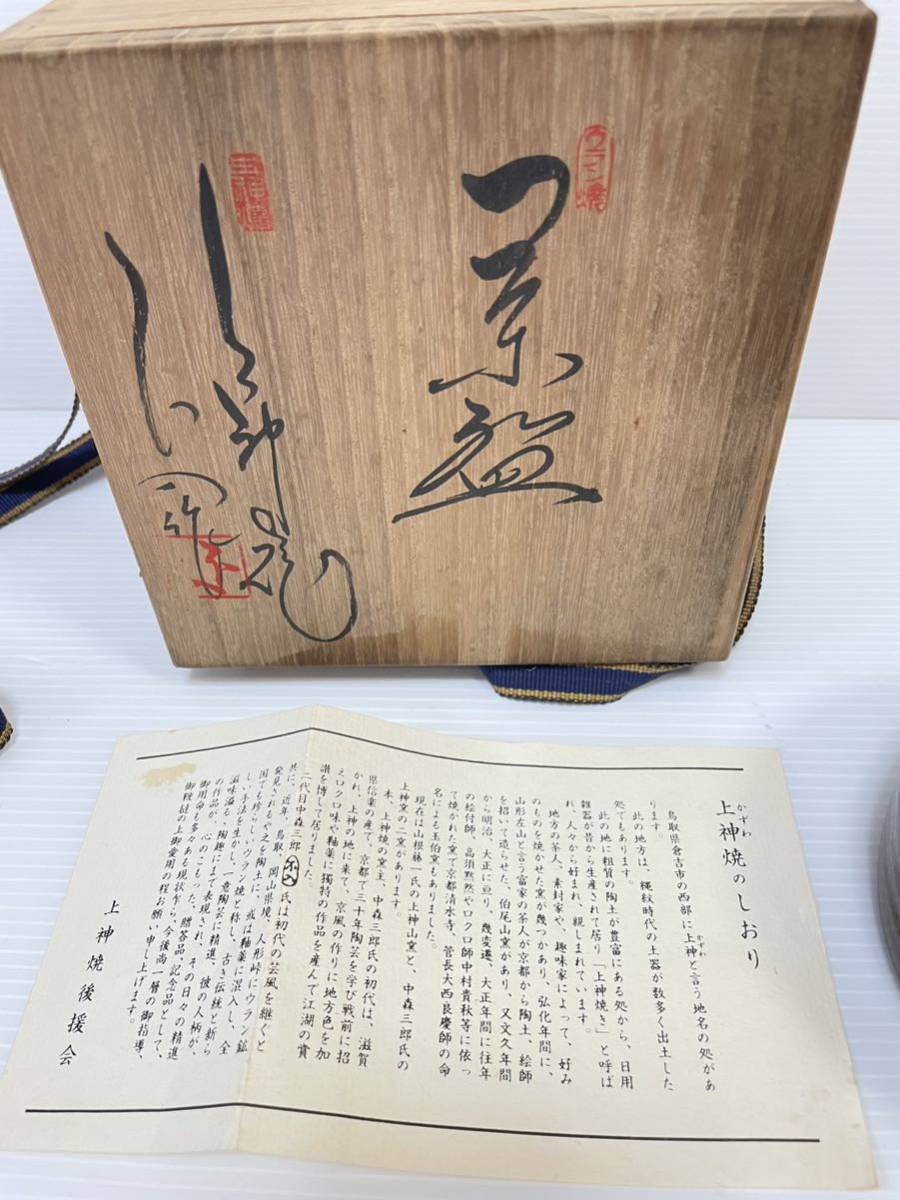 ウラン焼
菓盌
上神焼のしおり
かずわ
鳥取県倉吉市の西部に上神と言う地名の処があ
かずわ
ります。
此の地方は、縄紋時代の土器が数多く出土した
処でもあります。
此の地に粗質の陶土が豊富にある処から、日用
雑器が昔から生産されて居り「上神焼き」と呼ば
れ、人々から好まれ、親しまれています。
地方の茶人、素封家や、趣味家によって、好み
のものを焼かせた窯が幾つかあり、弘化年間に、
山形左山と言う富家の茶人が京都から陶土、絵師
を招いて造らせた、伯尾山窯があり、又文久年間
から明治、大正に亘り、幾変遷、大正年間に往年
の絵付師、高須黙然やロクロ師中村貴秋等に依っ
て焼かれた窯で京都清水寺、管長大西良慶師の命
名による玉伯窯もありました。
現在は山根藤一氏の上神山窯と、中森三郎氏の
上神窯の二窯があります。
本、上神焼の窯主、中森三郎氏の初代は、滋賀
県信楽の産で、京都で三十年陶芸を学び戦前に招
かれ、上神の地に来て、京風の作りに地方色を加
えロクロ味や釉薬に獨特の作品を産んで江湖の賞
讃を博して居りました。
二代目中森三郎 不入 氏は初代の芸風を継ぐと
共に、近年、鳥取、岡山県境、人形峠にウラン鉱
発見されるや之を陶土に、或は釉薬に混入し、全
国でも珍らしいウラン焼と称し、古き伝統と新ら
しい手法を生かし、一意陶芸に精進、彼の人柄が、
滋味溢る、陶趣にまで表現され、その日々の精進
の作品が、心のこもった、贈答品、記念品として、
御用命も多々ある現状乍ら、今後尚一層の御指導、
御鞭撻の上御愛用の程お願い申し上げます。
上神焼後援会